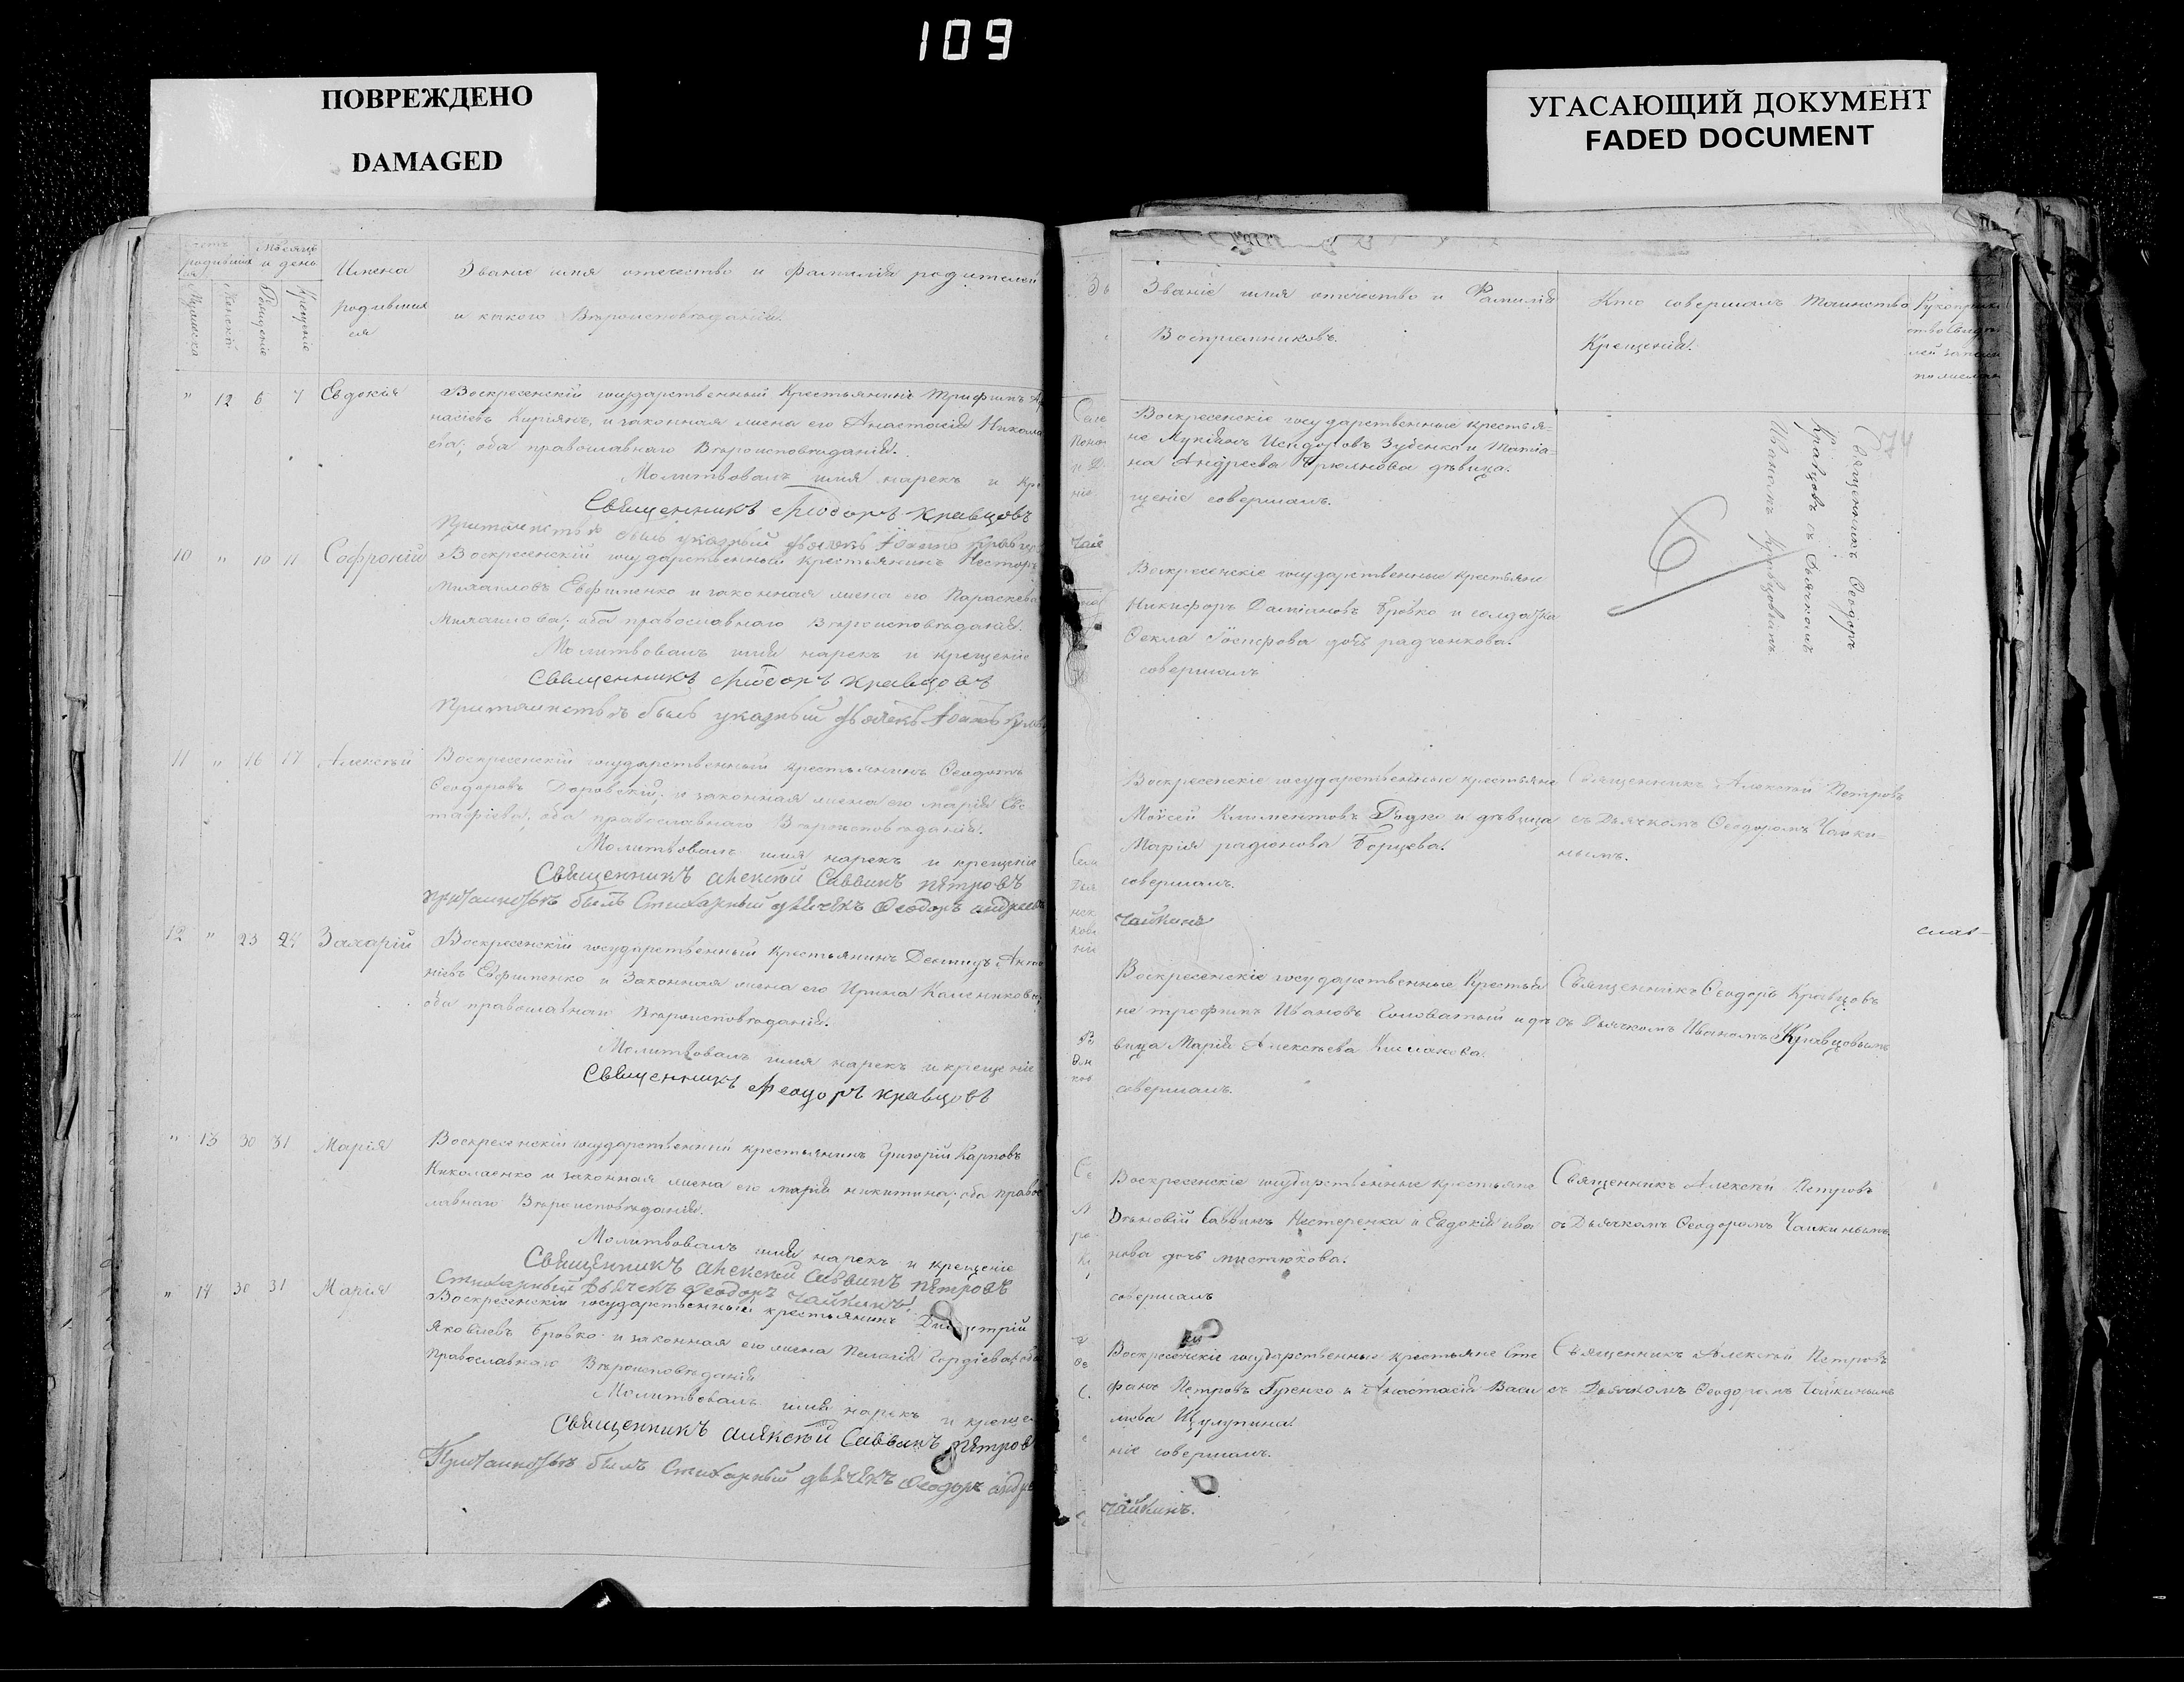 109
ПОВРЕЖДЕНО
DAMAGED
УГАСАЮЩИЙ ДОКУМЕНТ
FADED DOCUMENT
родивших
ся
Мѣсяцъ
и день
Мужеска
Женскій
Рожденіе
Крещеніе
Имена
родивших
ся
Званіе имя отечество и фамилія родителей
и какого Вѣроисповѣданія.
" 12 6 7 Евдокія
Воскресенскій государственный Крестьянинъ Трифинъ
насіевъ Кирıянъ, и законная жена его Анастасія Никола
ева; оба православнаго Вѣроисповѣданія.
Молитвовалъ имя нарекъ и кре
Священникъ Ѳеодоръ Кравцовъ
При таинствѣ былъ указный дьячекъ Іоаннъ
10 " 10 11 Софроній
Воскресенскій государственный крестьянинъ Несторъ
Михаиловъ Евфименко и законная жена его Параскева
Михаилова; оба православнаго Вѣроисповѣданія.
Молитвовалъ имя нарекъ и крещеніе
Священникъ Ѳеодоръ Кравцовъ
При таинствѣ былъ указный дьячекъ Іоаннъ
11 " 16 17 Алексѣй
Воскресенскій государственный крестьянинъ Ѳеодотъ
Ѳеодоровъ Даровскій; и законная жена его Марія Евс
тафіева; оба православнаго Вѣроисповѣданія.
Молитвовалъ имя нарекъ и крещеніе
Священникъ Алексѣй Саввинъ Петровъ
При таинствѣ былъ Стихарный дьячекъ Ѳеодоръ Андреевъ
12 " 23 24 Захарій
Воскресенскій государственный Крестьянинъ Демидъ Анто
ніевъ Евфименко и Законная жена его Ирина
оба православнаго Вѣроисповѣданія.
Молитвовалъ имя нарекъ и крещеніе
Священникъ Ѳеодоръ Кравцовъ
" 13 30 31 Марія
Воскресенскій государственный крестьянинъ Григорій Карповъ
Николаенко и законная жена его Марія Никитина; оба правос
лавнаго Вѣроисповѣданія.
Молитвовалъ имя нарекъ и крещеніе
Священникъ Алексѣй Саввинъ Петровъ
Стихарный Дьячекъ Ѳеодоръ Чайкинъ!
" 14 30 31 Марія
Воскресенскій государственный крестьянинъ Димитрій
Яковлевъ Бровко и законная его жена Пелагія Гордіева; оба
Православнаго Вѣроисповѣданія
Молитвовалъ имя нарекъ и креще
Священникъ Алексѣй Саввинъ Петров
При таинствѣ былъ Стихарный дьячекъ Ѳеодоръ Андре
Званіе имя отечество и Фамилія
Воспріемниковъ.
Кто совершалъ Таинство
Крещенія.
Рукоприклад
ство свидѣте
лей записи
по желан
Воскресенскіе государственные крестья-
не Лукіянъ Исидоровъ Зубенко и Татіа-
на Андреева дѣвица.
щеніе совершалъ.
Священникъ Ѳеодоръ
Кравцовъ съ Дьячкомъ
Иваномъ Кравцовымъ
Воскресенскіе государственные крестьяне
Никифоръ Даміановъ Бровко и солдатка
Ѳекла Іосифова дочь Радченкова.
совершалъ
Воскресенскіе государственные крестьяне
Моѵсей Климентовъ Гоцко и дѣвица
Марія Радіонова Борцева.
совершалъ.
Чайкинъ
Священникъ Алексѣй Петровъ
съ Дьячкомъ Ѳеодоромъ Чайки-
нымъ.
слав-
Воскресенскіе государственные Крестья
не Трофимъ Ивановъ Головатый и дѣ
вица Марія Алексѣева
совершалъ.
Священникъ Ѳеодоръ Кравцовъ
съ Дьячкомъ Иваномъ Кравцовымъ
Воскресенскіе государственные крестьяне
Зѣновій Саввинъ Нестеренко и Евдокія Ива
нова дочь Мистюкова.
совершалъ
Священникъ Алексѣй Петровъ
съ Дьячкомъ Ѳеодоромъ Чайкинымъ.
Воскресенскіе государственные крестьяне Сте
фанъ Петровъ Гуренко и Анастасія Васи
лева Щулупина.
ніе совершалъ.
Чайкинъ.
Священникъ Алексѣй Петровъ
съ Дьячкомъ Ѳеодоромъ Чайкинымъ